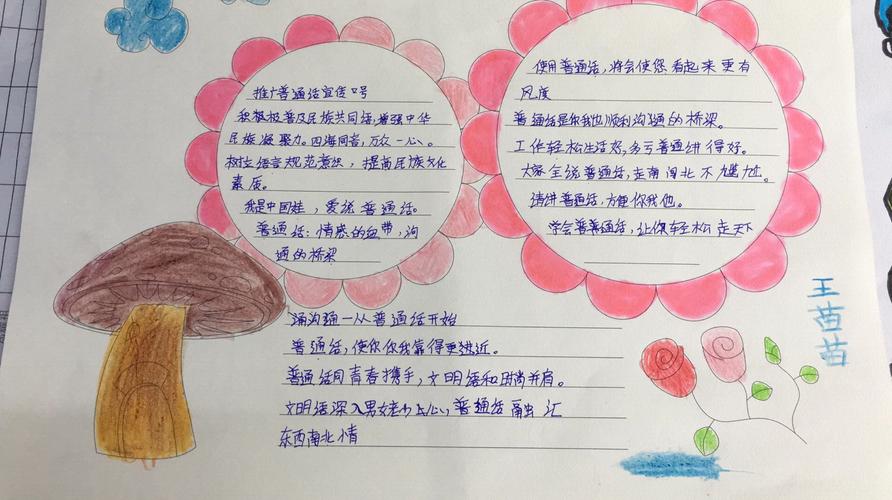 推广普通话宣传口号
积极极普及民族共同语,增强中华
民族凝聚力。四海同音,万众一心。
树立语言规范意识,提高民族文化
素质。
我是中国娃,爱说普通话。
普通话:情感的纽带,沟
通的桥梁
使用普通话,将会使您看起来更有
风度
普通话是你我他顺利沟通的桥梁。
工作轻松生活好,多亏普通讲得好。
大家全说普通话,走南闯北不尴尬。
请讲普通话,方便你我他。
学会普普通话,让你轻松走天下
涌沟通一从普通话开始
普通话,使你你我靠得更进近。
普通话同青春携手,文明语和时尚并肩。
文明语深入男女老少心,普通话融汇
东西南北情
王苗苗